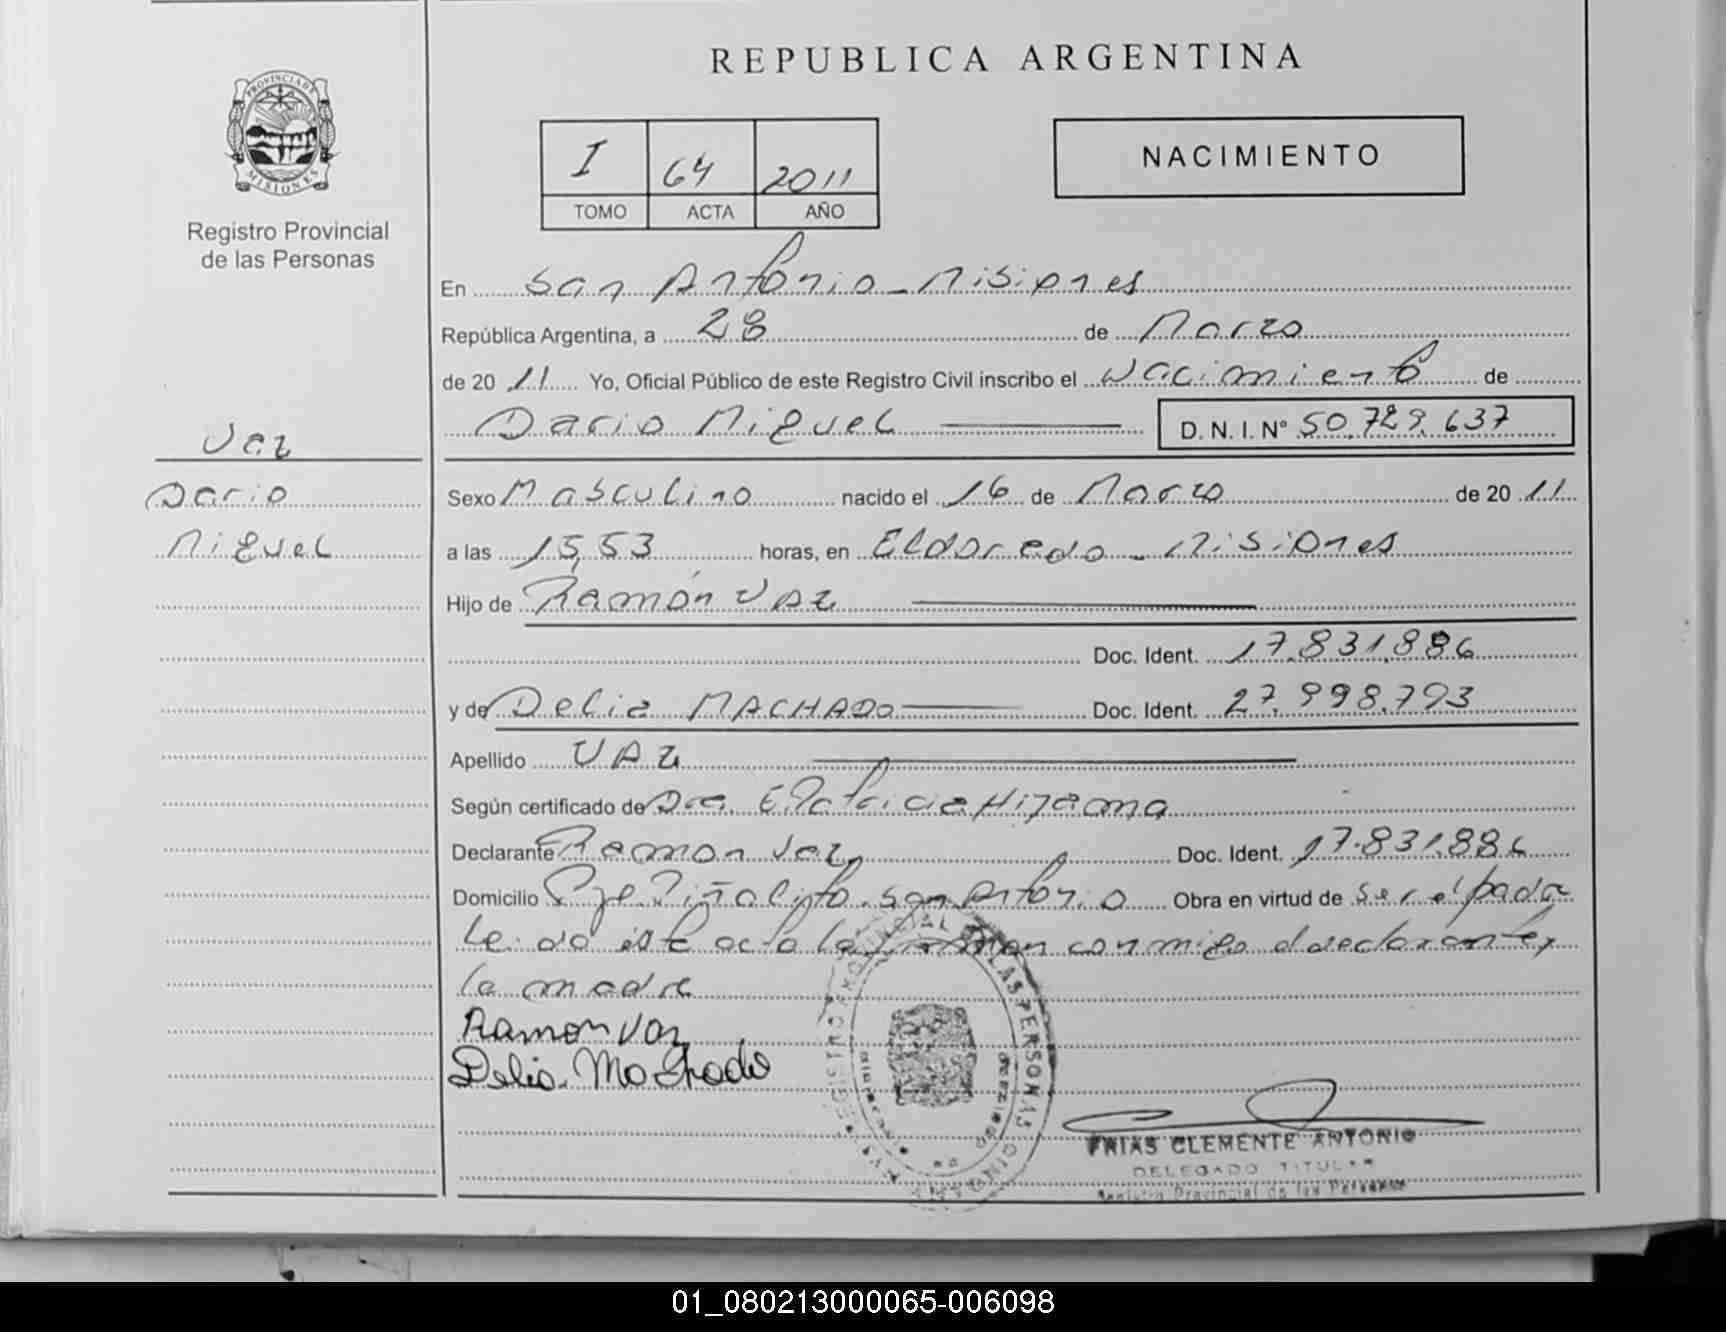 REPUBLICA ARGENTINA
PROVINCIA DE MISIONES
Registro Provincial
de las Personas
I 64 2011
TOMO ACTA AÑO
NACIMIENTO
En San Antonio - Misiones
República Argentina, a 28 de Marzo
de 2011 Yo, Oficial Público de este Registro Civil inscribo el Nacimiento de
Dario Miguel D. N. I. N° 50.729.637
Vaz
Dario
Miguel
Sexo Masculino nacido el 16 de Marzo de 2011
a las 15,53 horas, en Eldorado - Misiones
Hijo de Ramón VAZ
Doc. Ident. 17.831.886
y de Delia MACHADO Doc. Ident. 27.998.793
Apellido VAZ
Según certificado de Dra. E. Patricia
Declarante Ramon Vaz Doc. Ident. 17.831.886
Domicilio Pje. Piñalito. San Antonio Obra en virtud de ser el padre
Leida esta acta la firman conmigo el declarante y
la madre
Ramon Vaz
Delia Machado
FRIAS CLEMENTE ANTONIO
DELEGADO TITULAR
Registro Provincial de las Personas
01_080213000065-006098